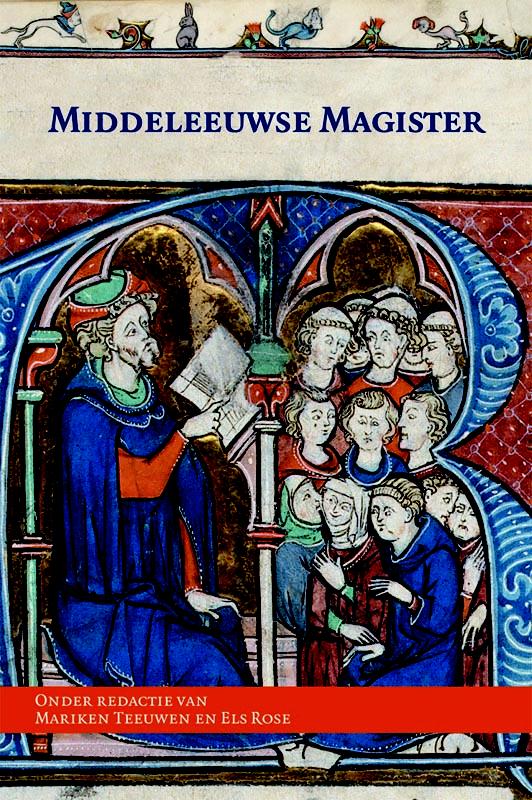 MIDDELEEUWSE MAGISTER
ONDER REDACTIE VAN
MARIKEN TEEUWEN EN ELS ROSE